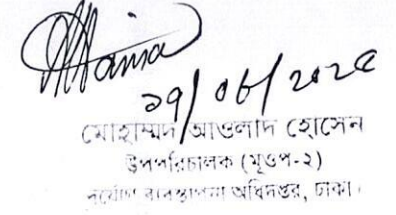 ১৭/০৮/২০২৫
মোহাম্মদ আওলাদ হোসেন
উপপরিচালক (মূওপ-২)
দুর্যোগ ব্যবস্থাপনা অধিদপ্তর, ঢাকা।